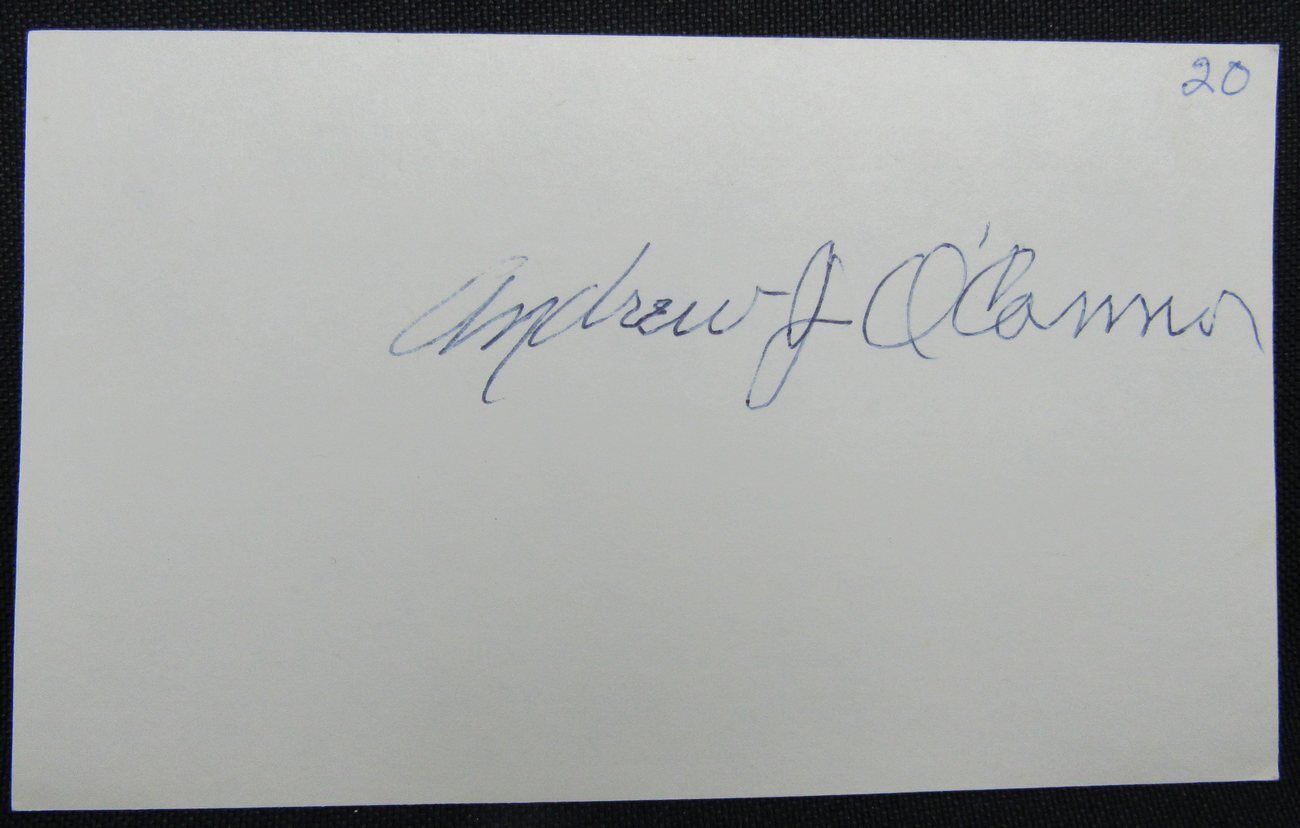 20
Andrew J O'Connor